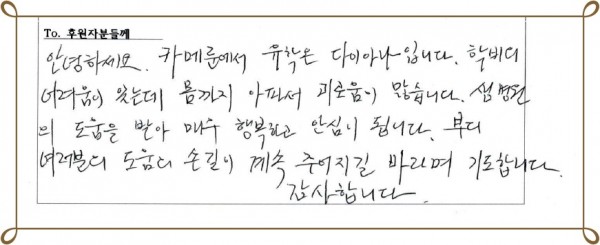 To. 후원자분들께
안녕하세요. 카메룬에서 유학온 다이아나입니다. 학비의
어려움이 있는데 몸까지 아파서 괴로움이 많습니다. 샘병원
의 도움을 받아 매우 행복하고 안심이 됩니다. 부디
여러분의 도움의 손길이 계속 주어지길 바라며 기도합니다.
감사합니다.